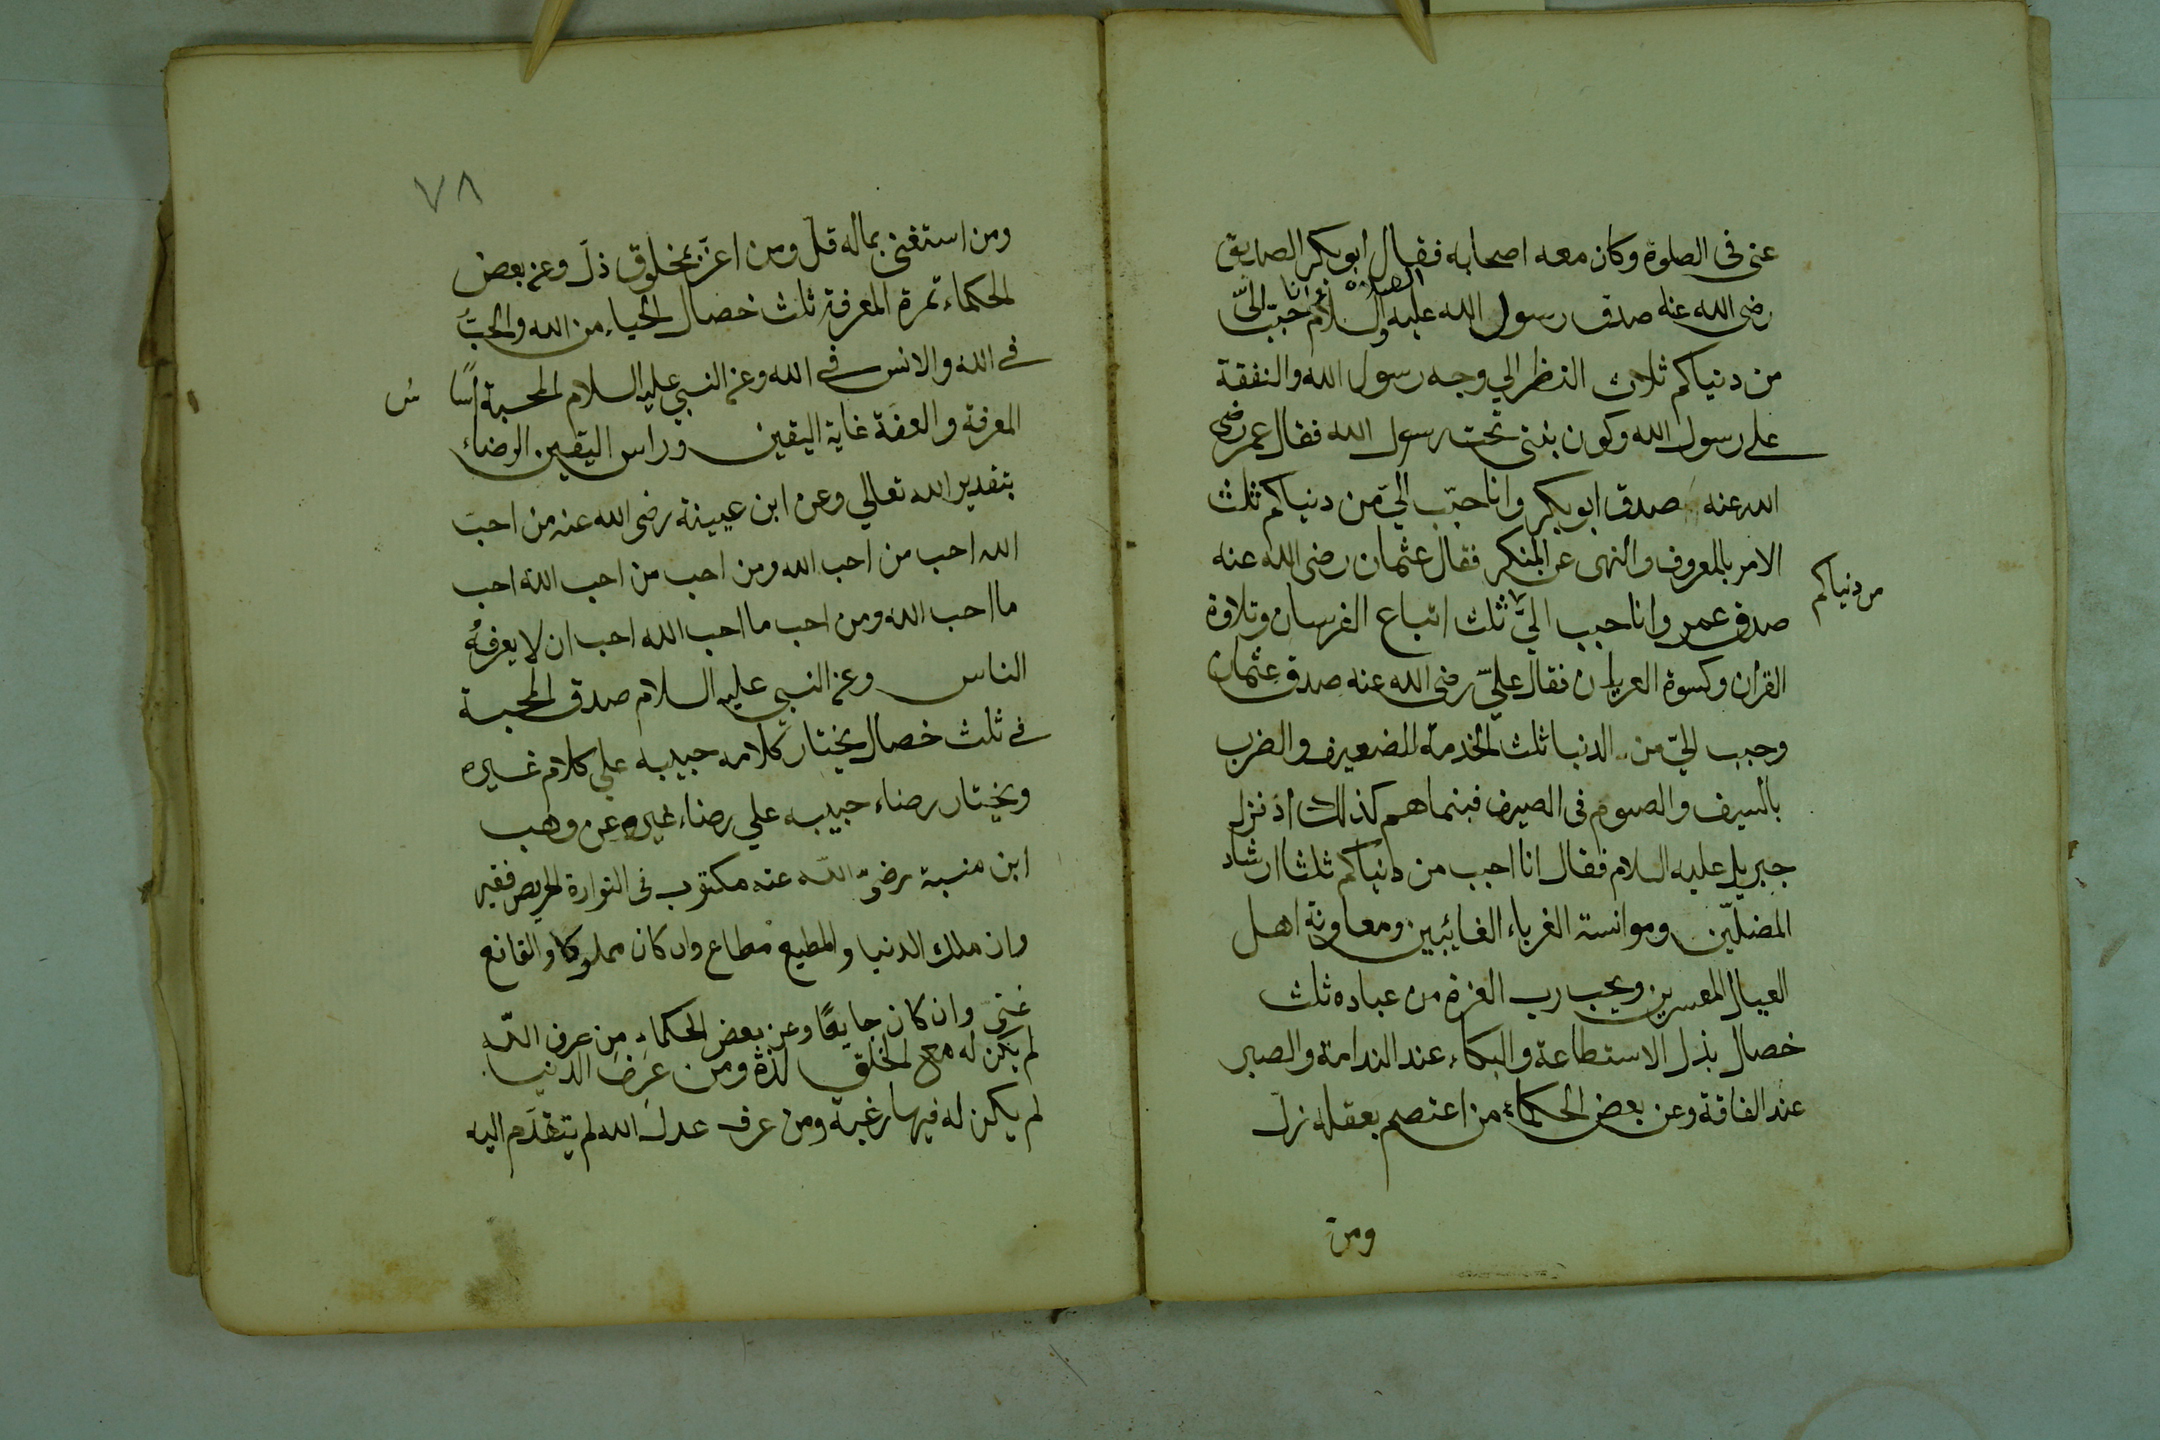 عنى فى الصلوة وكان معه اصحابه فقال ابو بكر الصديق
رضى الله عنه صدق رسول الله عليه الصلاة والسلام نعم انا حبّب اليّ
من دنياكم ثلاث النظر الي وجه رسول الله والنفقة
على رسول الله وكون بنتى تحت رسول الله فقال عمر رضى
الله عنه صدق ابو بكر وانا حبّب اليّ من دنياكم ثلث
الامر بالمعروف والنهى عن المنكر فقال عثمان رضى الله عنه
من دنياكم
صدق عمر وانا حبب اليّ ثلث اتباع الفرسان وتلاوة
القران وكسوة العريان فقال عليّ رضى الله عنه صدق عثمان
وحبب اليّ من الدنيا ثلث الخدمة للضعيف والضرب
بالسيف والصوم فى الصيف فبنماهم كذالك اذ نزل
جبريل عليه السلام فقال انا احب من دنياكم ثلثا ارشاد
المضلّين وموانسة الغرباء الغائبين ومعاونة اهل
العيال المعسرين ويحب رب العزة من عباده ثلث
خصال بذل الاستطاعة والبكاء عند الندامة والصبر
عند الفاقة وعن بعض الحكماء من اعتصم بعقله زلّ
ومن
٧٨
ومن استغنى بماله قل ومن اعزّ بمخلوق ذلّ وعن بعض
الحكماء ثمرة المعرفة ثلث خصال الحياء من الله والحبّ
فى الله والانس فى الله وعن النبي عليه السلام المحبة اسا س
المعرفة والعفة غاية اليقين وراس اليقين الرضاء
بتقدير الله تعالي وعن ابن عيينة رضى الله عنه من احب
الله احب من احب الله ومن احب من احب الله احب
ما احب الله ومن احب ما احب الله احب ان لا يعرفهُ
الناس وعن النبي عليه السلام صدق المحبة
فى ثلث خصال يختار كلامه حبيبه علي كلام غيره
ويختار رضاء حبيبه علي رضاء غيره عن وهب
ابن منبة رضى الله عنه مكتوب فى التوارة الحريص فقير
وان ملك الدنيا والمطيع مطاع وان كان مملوكا والقانع
غنى وان كان جايعًا وعن بعض الحكماء من عرف الله
لم يكن له مع الخلق لذة ومن عرف الدنيا
لم يكن له فيها رغبة ومن عرف عدل الله لم يتقدم اليه